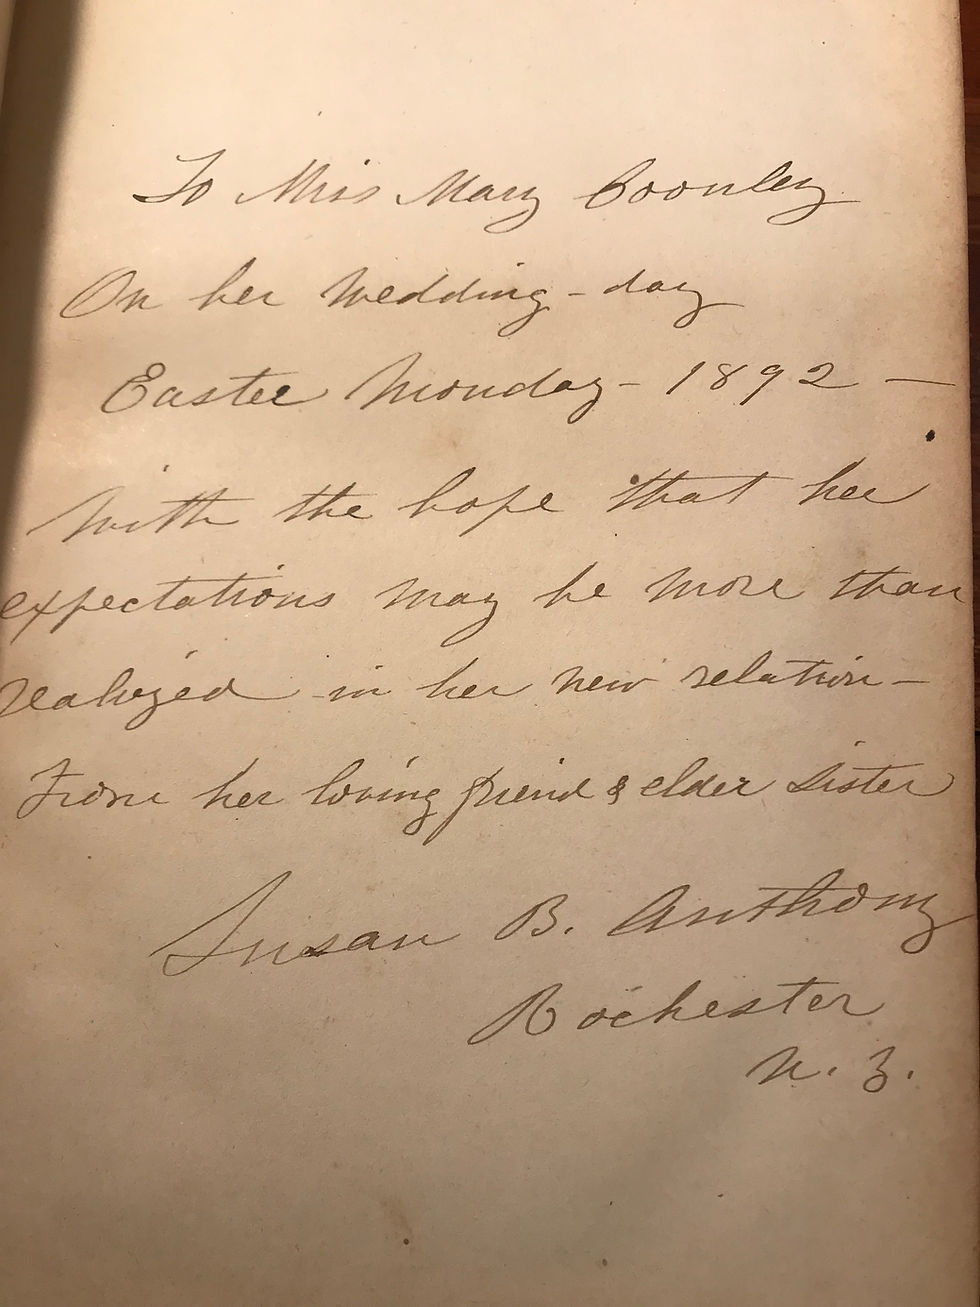 To Miss Mary Coonley
On her wedding-day
Easter Monday - 1892 -
With the hope that her
expectations may be more than
realized in her new relation -
From her loving friend & elder sister
Susan B. Anthony
Rochester
N. Y.